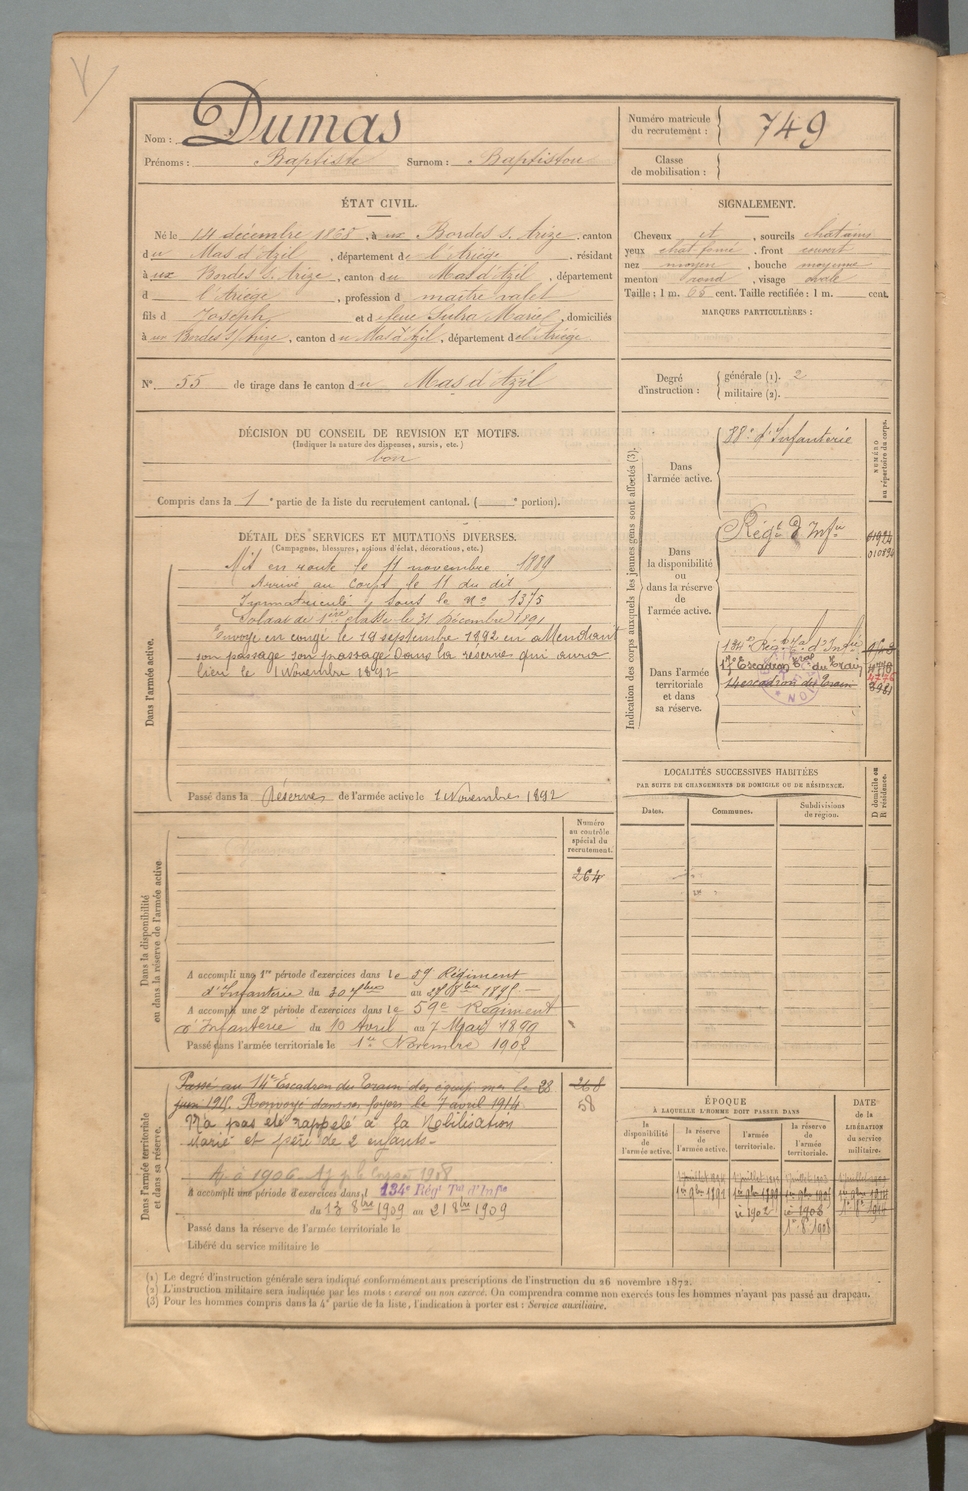 Nom : Dumas
Prénoms : Baptiste Surnom : Baptistou
Numéro matricule du recrutement : 749
Classe de mobilisation :
ÉTAT CIVIL.
Né le 14 décembre 1868, à ux Bordes s. Arize, canton
du Mas d'Azil, département de l'Ariège, résidant
à ux Bordes s. Arize, canton du Mas d'Azil, département
d l'Ariège, profession d maître valet
fils d Joseph et d feue Sutra Marie, domiciliés
à ux Bordes s/Arize, canton du Mas d'Azil, département de l'Ariège
N° 55 de tirage dans le canton du Mas d'Azil
SIGNALEMENT.
Cheveux et, sourcils chatains
yeux, front couvert
nez moyen, bouche moyenne
menton rond, visage ovale
Taille : 1 m. 65 cent. Taille rectifiée : 1 m. cent.
MARQUES PARTICULIÈRES :
Degré d'instruction :
générale (1). 2
militaire (2).
DÉCISION DU CONSEIL DE REVISION ET MOTIFS.
(Indiquer la nature des dispenses, sursis, etc.)
bon
Compris dans la 1e partie de la liste du recrutement cantonal. ( e portion).
DÉTAIL DES SERVICES ET MUTATIONS DIVERSES.
(Campagnes, blessures, actions d'éclat, décorations, etc.)
Dans l'armée active.
Mit en route le 11 novembre 1889
Arrivé au corps le 11 du dit
Immatriculé sous le n° 1375
Soldat de 1ère classe le 31 Décembre 1891
Envoyé en congé le 19 septembre 1892 en attendant
son passage son passage dans la réserve qui aura
lieu le 1 Novembre 1892
Passé dans la Réserve de l'armée active le 1 Novembre 1892
Indication des corps auxquels les jeunes gens sont affectés (3).
NUMÉRO au répertoire du corps.
Dans l'armée active.
88e d'Infanterie
Dans la disponibilité ou dans la réserve de l'armée active.
Régt d'Infie
Dans l'armée territoriale et dans sa réserve.
134e Régt Tal d'Infie
17e Escadron Tial du Train
14 escadron du Train
4776
3981
LOCALITÉS SUCCESSIVES HABITÉES
PAR SUITE DE CHANGEMENTS DE DOMICILE OU DE RÉSIDENCE.
Dates. Communes. Subdivisions de région.
D domicile ou R résidence.
Dans la disponibilité ou dans la réserve de l'armée active
Numéro au contrôle spécial du recrutement.
264
A accompli une 1re période d'exercices dans le 59 Régiment
d'Infanterie du 30 7bre au 8bre 1895
A accompli une 2e période d'exercices dans le 59e Régiment
d'Infanterie du 10 Avril au 7 Mai 1899
Passé dans l'armée territoriale le 1er Novembre 1902
Dans l'armée territoriale et dans sa réserve.
Passé au 14e Escadron du Train des équip. mes le 28
juin 1915. Renvoyé dans ses foyers le 7 avril 1914
268
58
N'a pas été rappelé à la Mobilisation
Marié et père de 2 enfants
A accompli une période d'exercices dans l 134e Régt Tal d'Infie
du 13 8bre 1909 au 21 8bre 1909
Passé dans la réserve de l'armée territoriale le
Libéré du service militaire le
ÉPOQUE
À LAQUELLE L'HOMME DOIT PASSER DANS
la disponibilité de l'armée active.
la réserve de l'armée active.
l'armée territoriale.
la réserve de l'armée territoriale.
DATE de la LIBÉRATION du service militaire.
1er 9bre 1892
1902
1908
(1) Le degré d'instruction générale sera indiqué conformément aux prescriptions de l'instruction du 26 novembre 1872.
(2) L'instruction militaire sera indiquée par les mots : exercé ou non exercé. On comprendra comme non exercés tous les hommes n'ayant pas passé au drapeau.
(3) Pour les hommes compris dans la 4e partie de la liste, l'indication à porter est : Service auxiliaire.